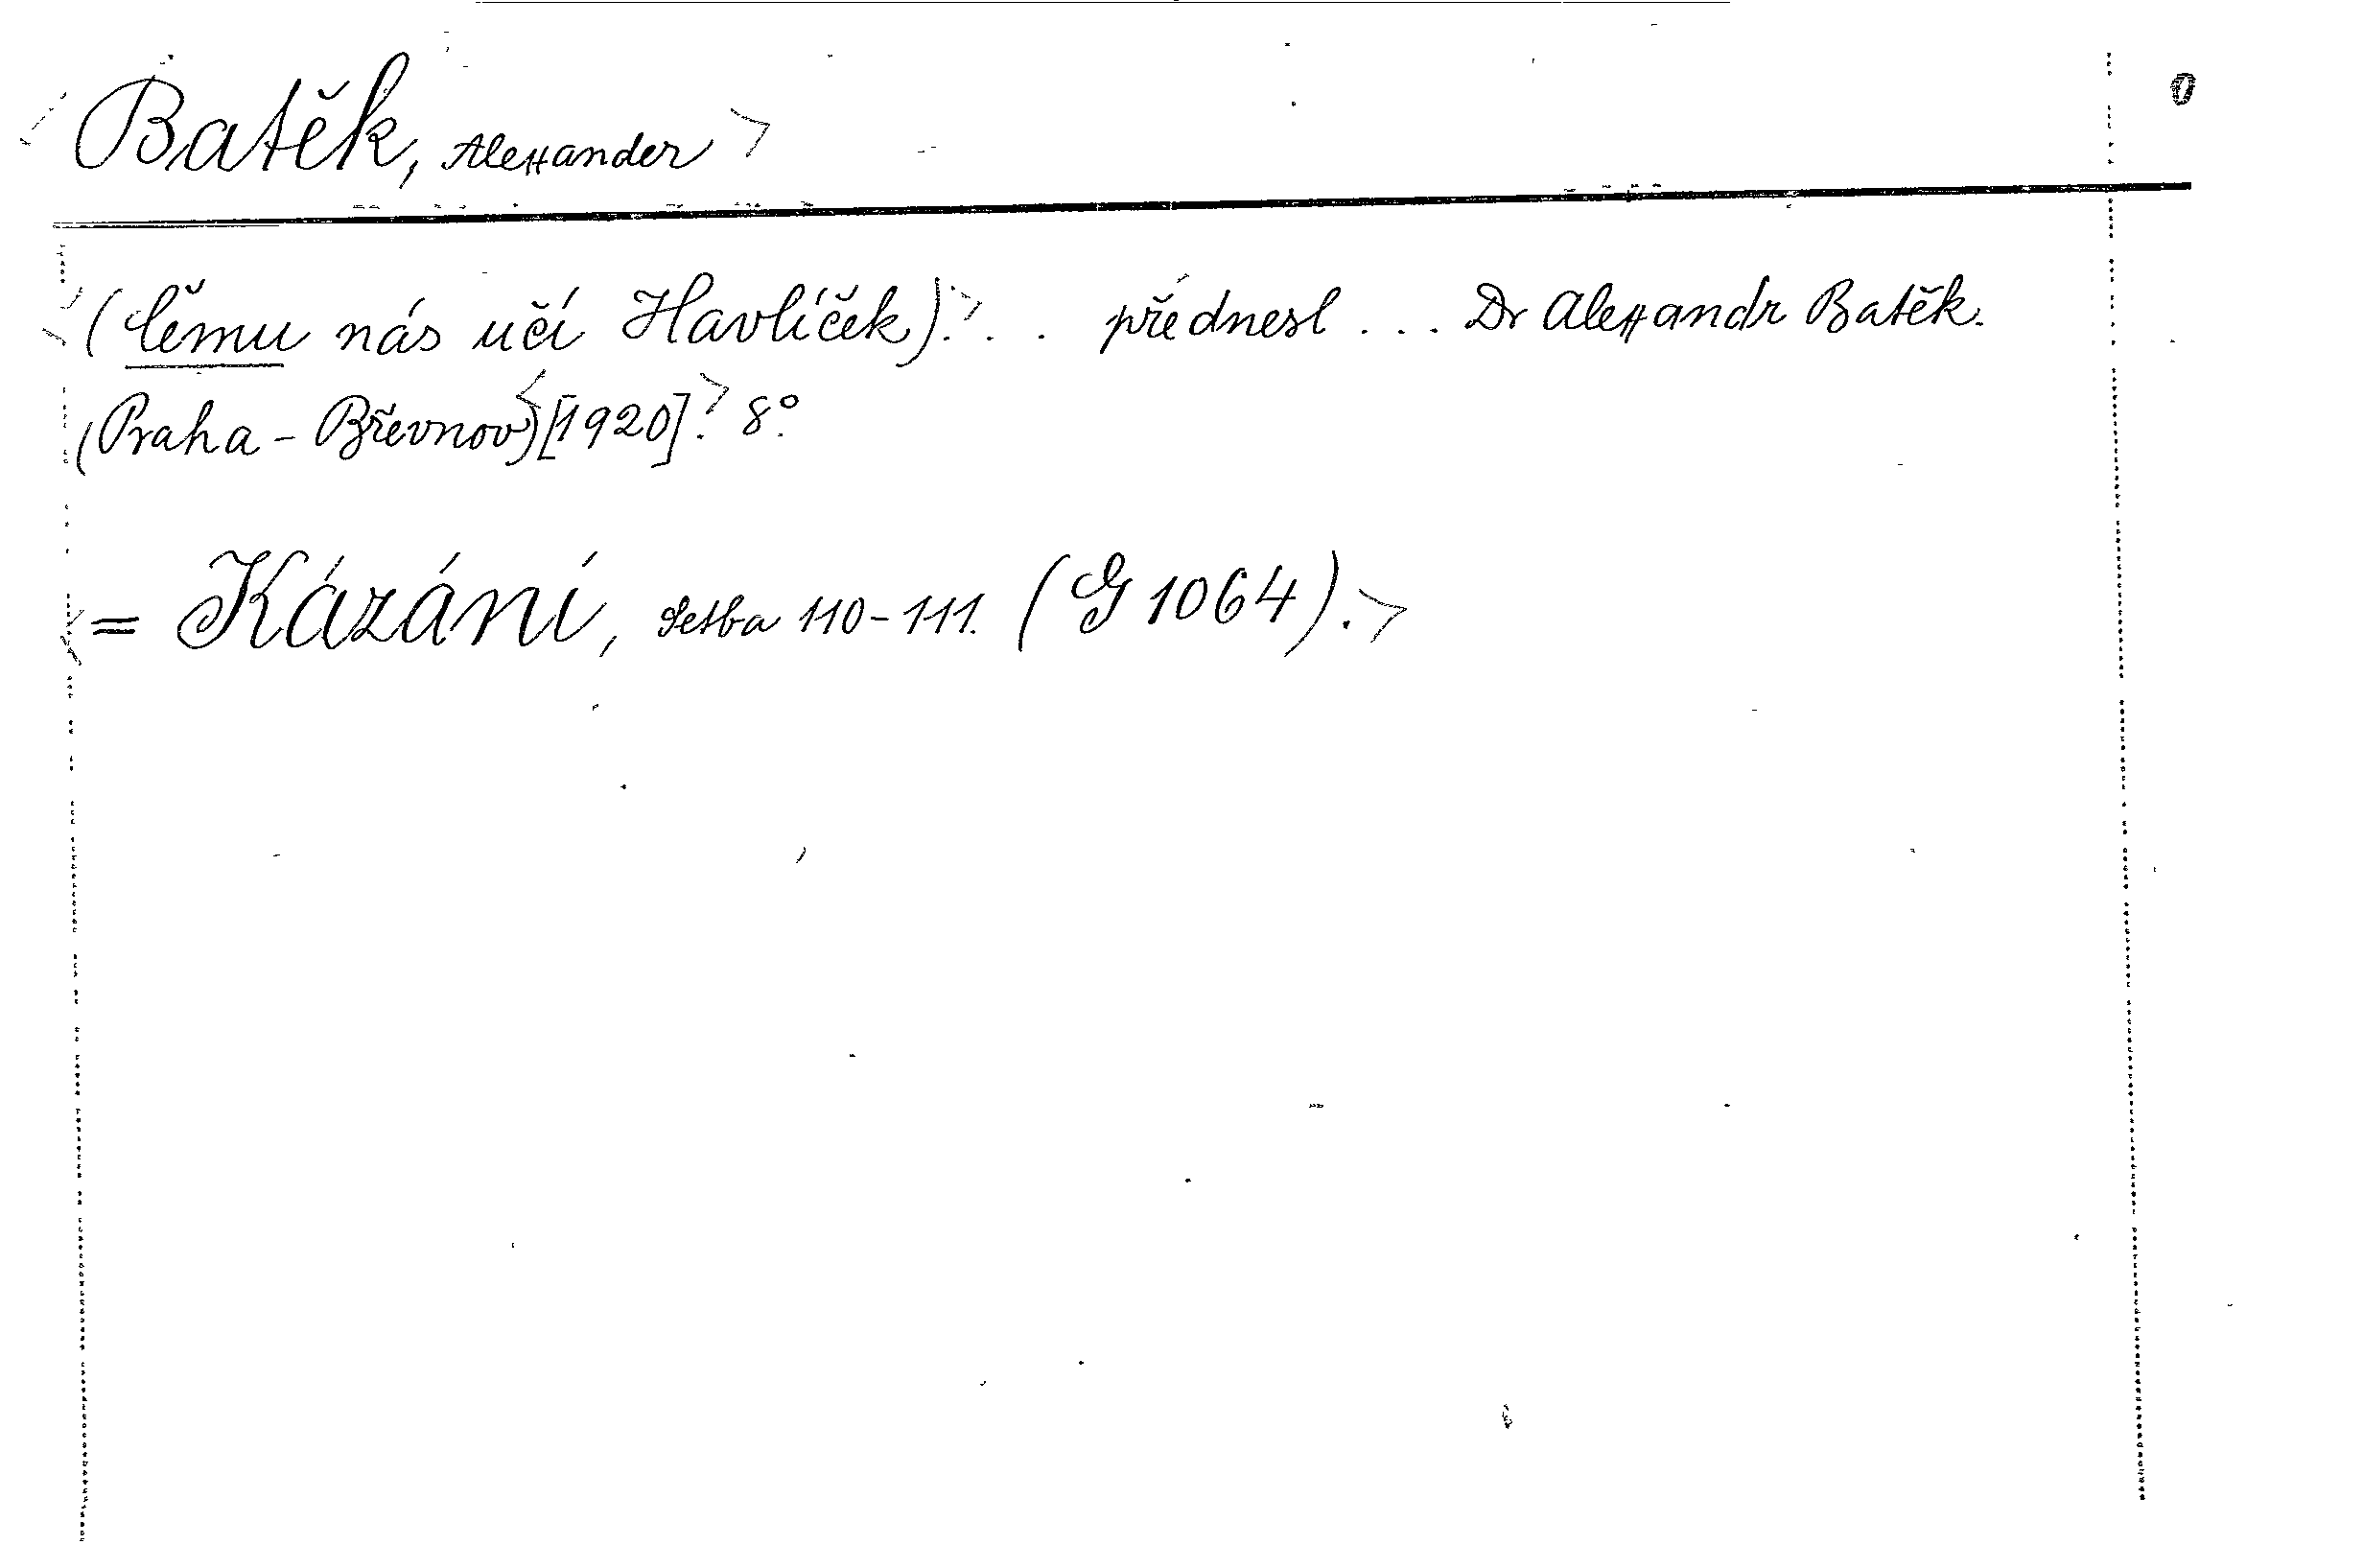 Batěk, Alexander
0
(Čemu nás učí Havlíček). . . přednesl ... Dr Alexandr Batěk.
(Praha - Břevnov) [1920]. 8°.
= Kázání, Setba 110-111. (G 1064).